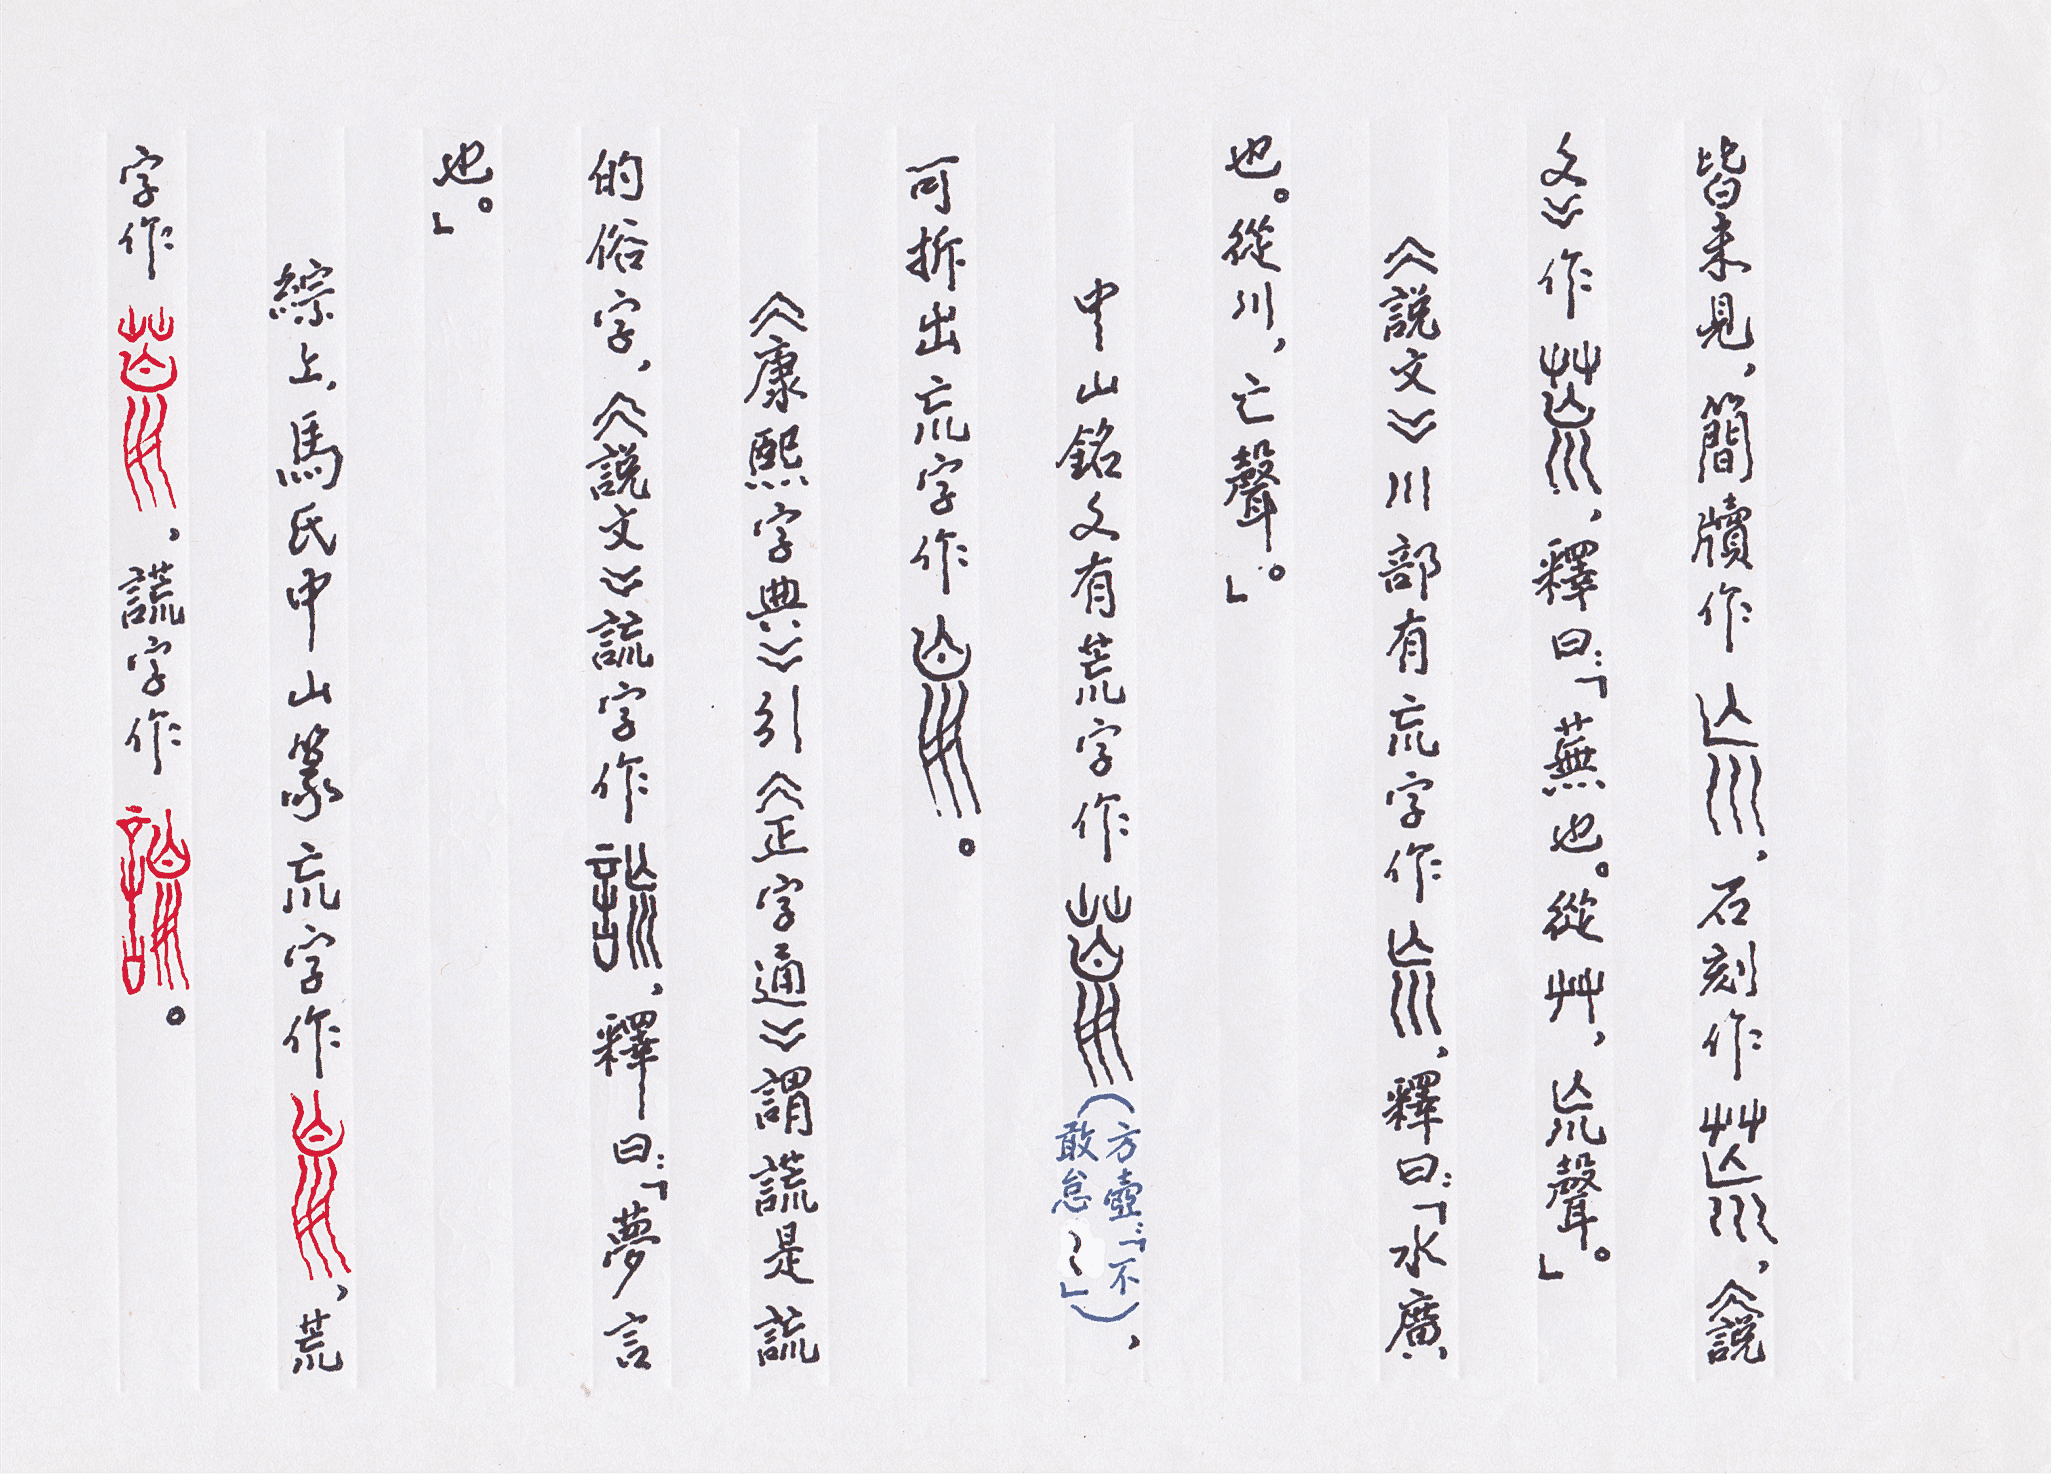 皆未見，簡牘作巟，石刻作荒，《説
文》作荒，釋曰：「蕪也。從艸，巟聲。」
《説文》川部有巟字作巟，釋曰：「水廣
也。從川，亡聲。」
中山銘文有荒字作荒（方壺：「不敢怠」），
可拆出巟字作巟。
《康熙字典》引《正字通》謂謊是詤
的俗字，《説文》詤字作詤，釋曰：「夢言
也。」
綜上，馬氏中山篆巟字作巟，荒
字作荒，謊字作詤。